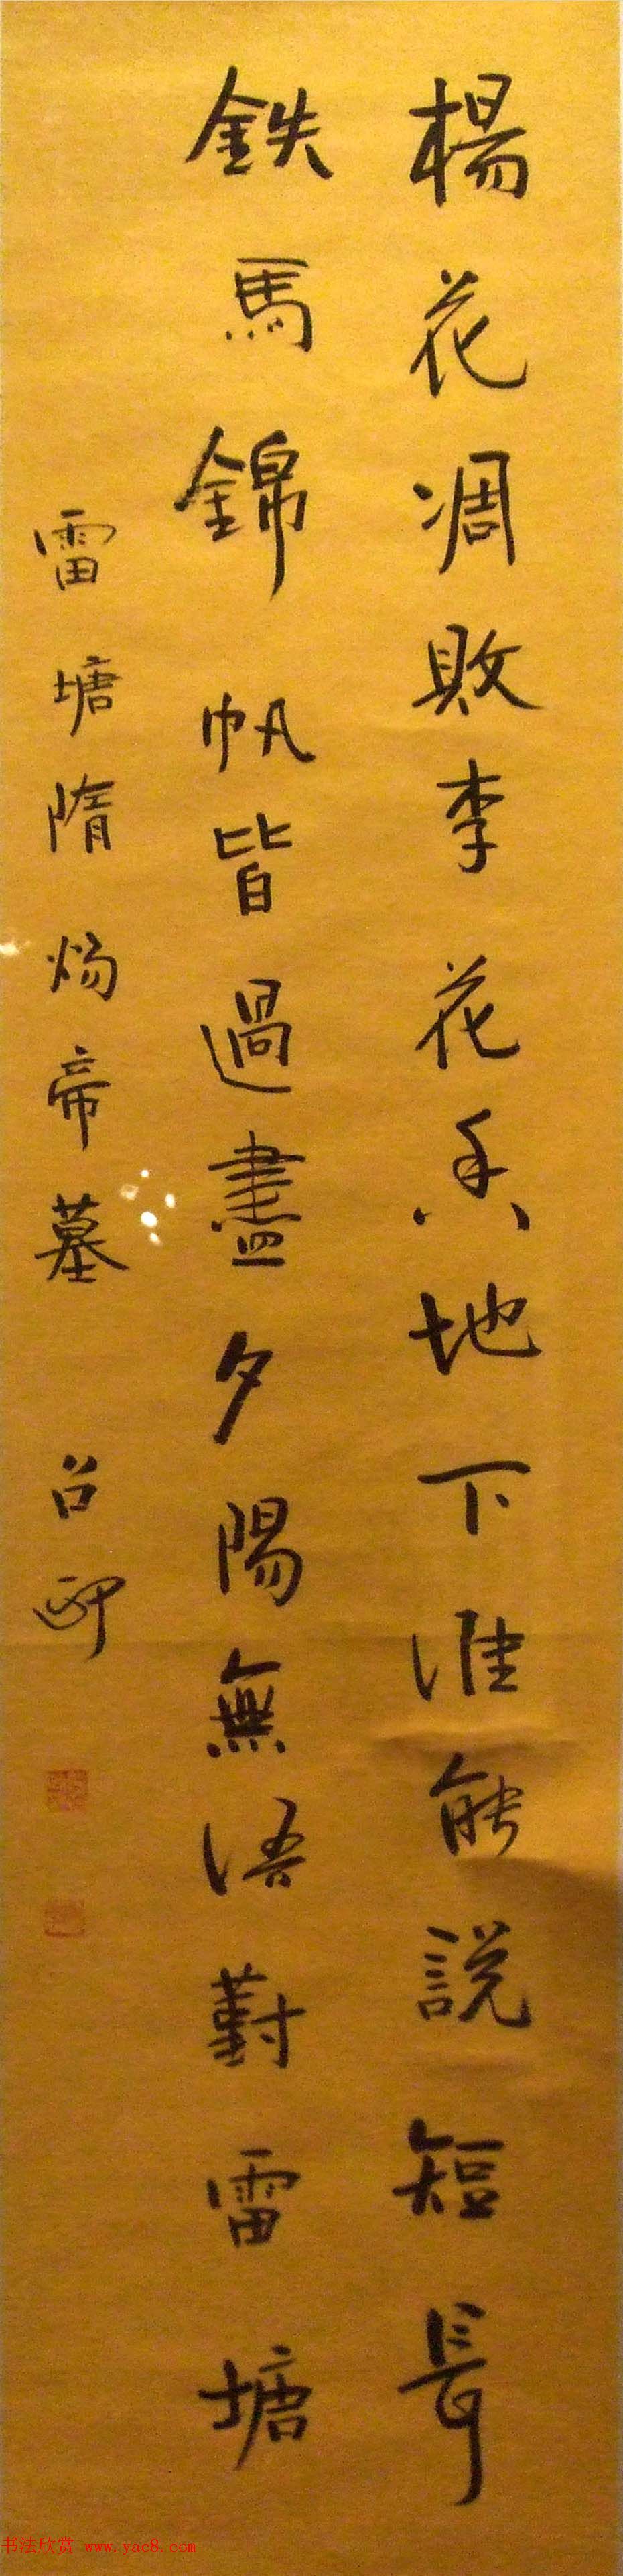 楊花凋敗李花香地下誰能說短長
鉄馬錦帆皆過盡夕陽無語對雷塘
雷塘隋煬帝墓 召
书法欣赏 www.yac8.com